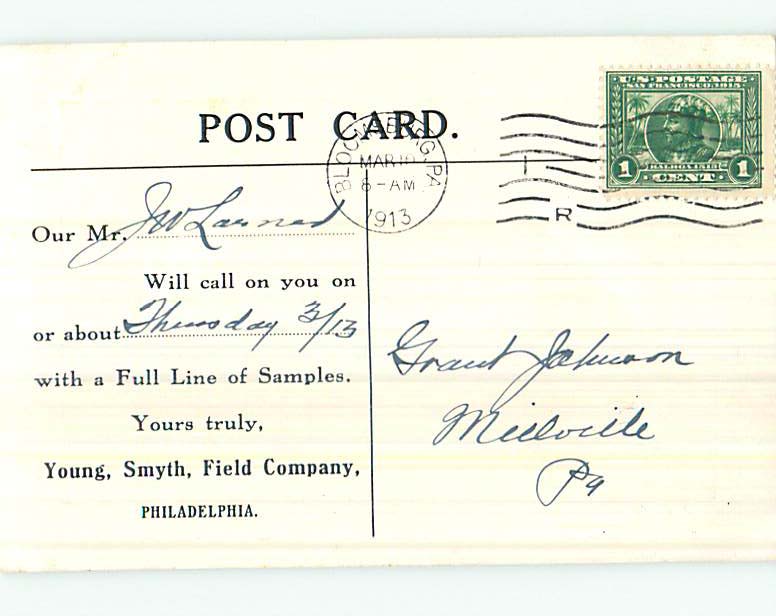 POST CARD.
BLOOMSBURG, PA
MAR 10
8-AM
1913
R
U.S. POSTAGE
SAN FRANCISCO 1915
BALBOA 1513
1 CENT 1
Our Mr. JW Larned
Will call on you on
or about Thursday 3/13
with a Full Line of Samples.
Yours truly,
Young, Smyth, Field Company,
PHILADELPHIA.
Grant Johnson
Millville
Pa